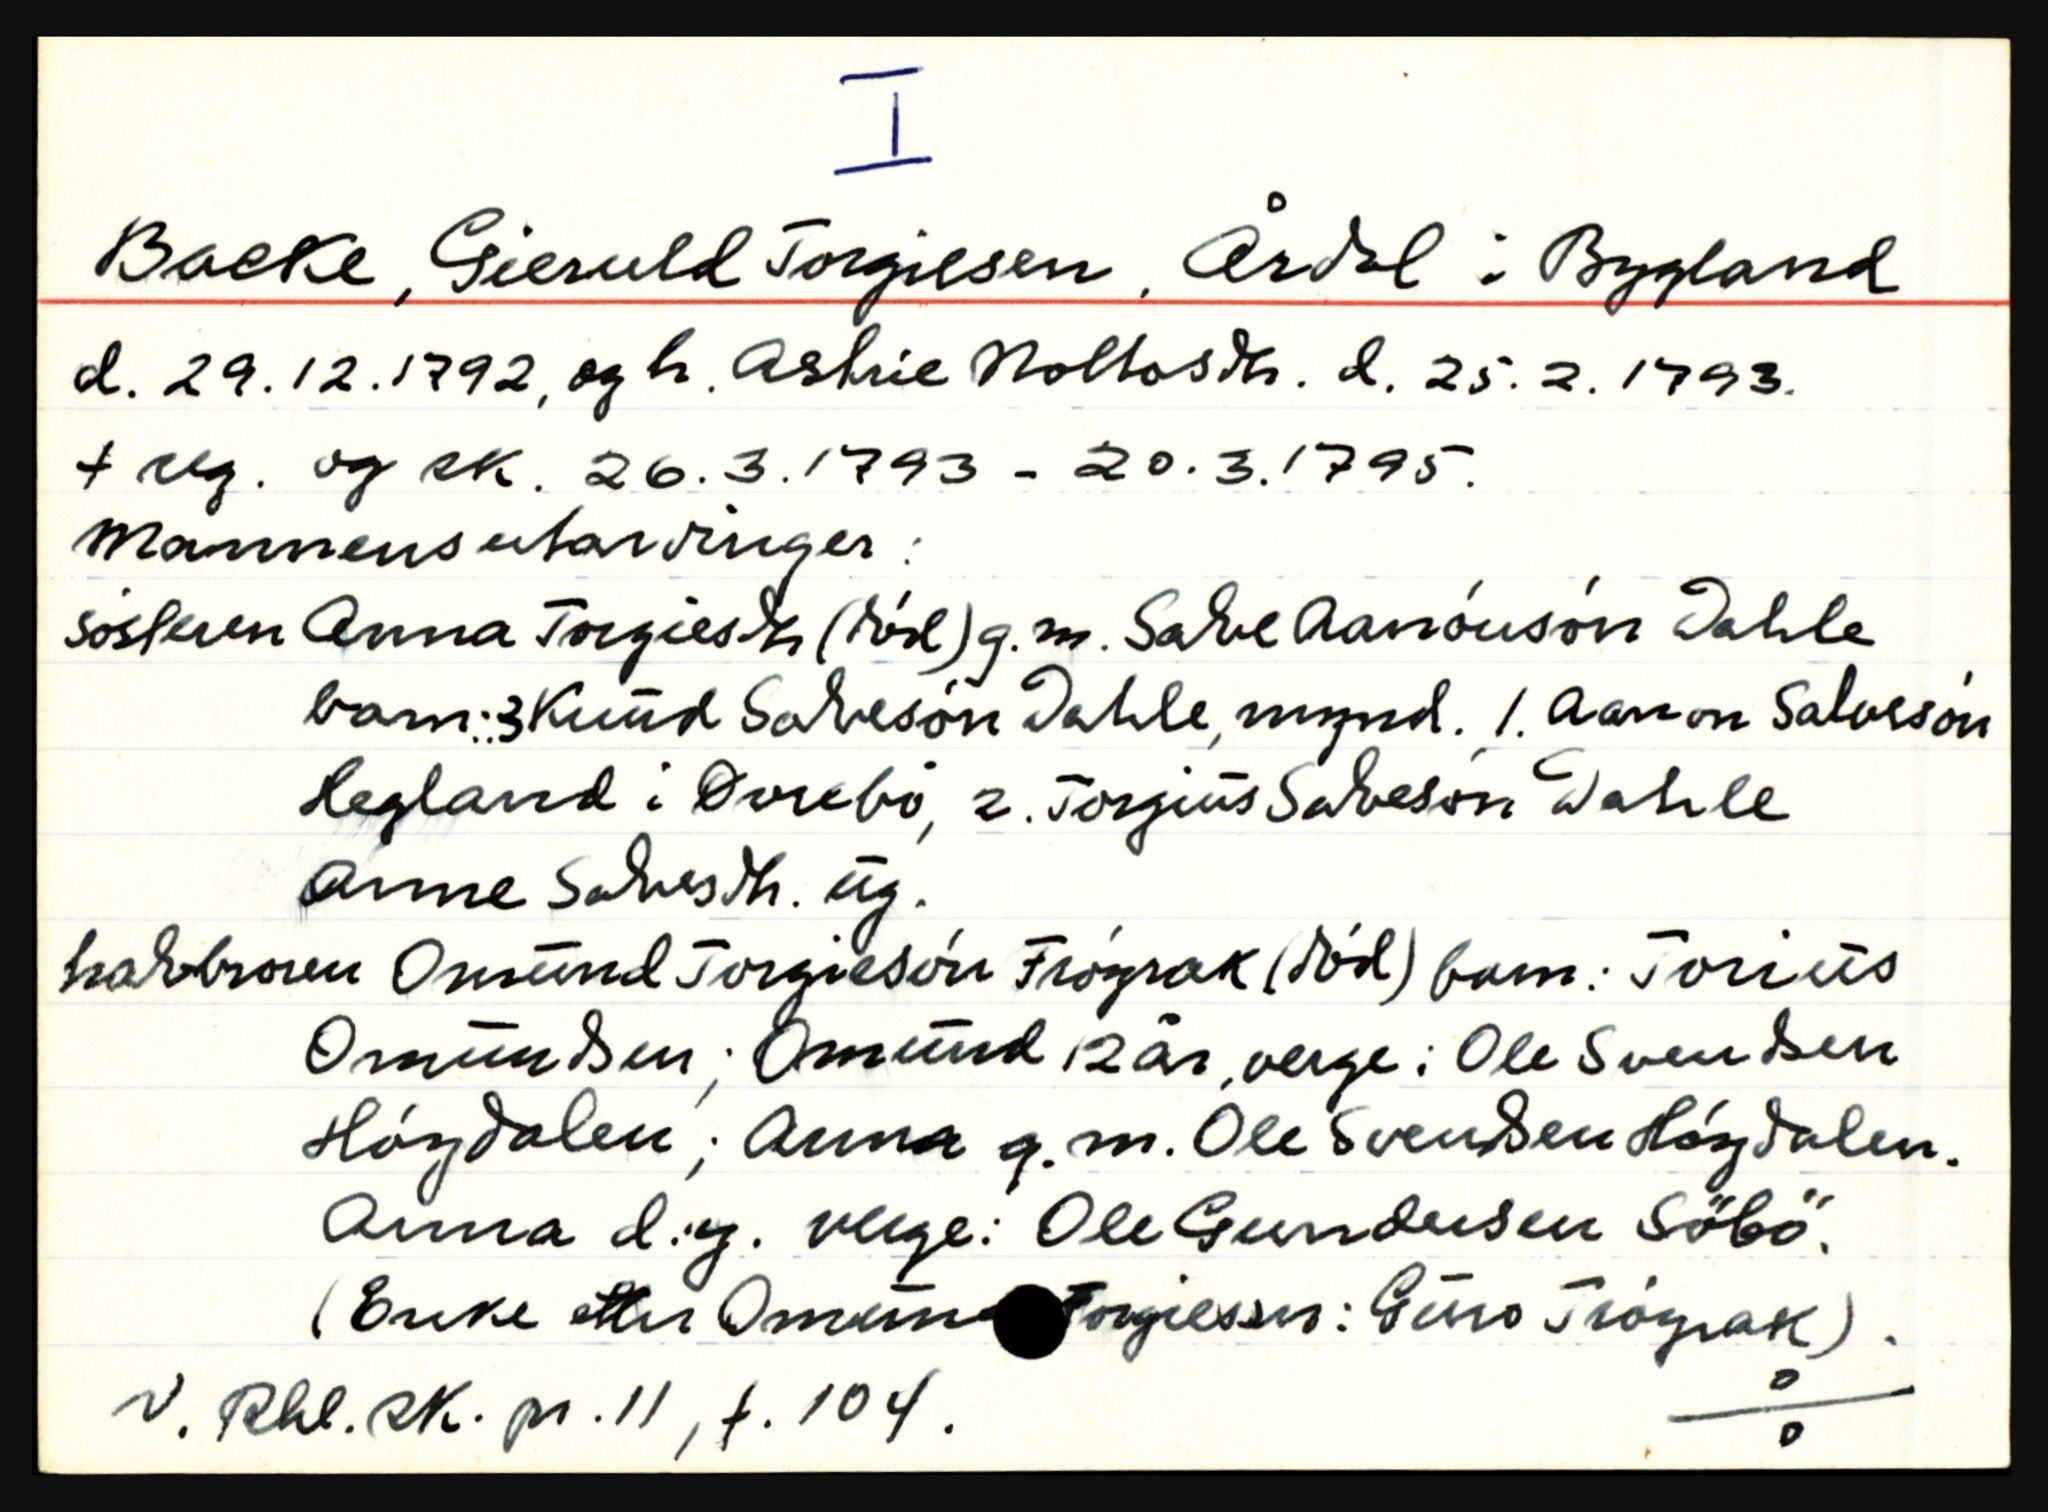 I
Backe, Gieruld Torgiesen, Årdal i Bygland
d. 29.12.1792, og h. Astrie Noltosdtr. d. 25.2.1793.
† reg. og sk. 26.3.1793 - 20.3.1795.
Mannens utarvinger:
søsteren Anna Torgiesdtr (død) g.m. Salve Aanónsón Dahle
barn: 3 Knūd Salvesón Dahle, mynd. 1. Aanon Salvesón
Hegland i Dovebó, 2. Torgiūs Salvesón Dahle
Anne Salvesdtr. ūg.
halvbroren Omūnd Torgiesón Fróyrak (død) barn: Toriūs
Omūndsen; Omūnd 12 år, verge: Ole Svendsen
Hóydalen; Anna g.m. Ole Svendsen Hóydalen.
Anna d.y. verge: Ole Gundersen Söbö.
(Enke etter Omūnd Torgiessen: Gūro Fróyrak).
V. Rbl. sk. pr. 11, f. 104.
0
0